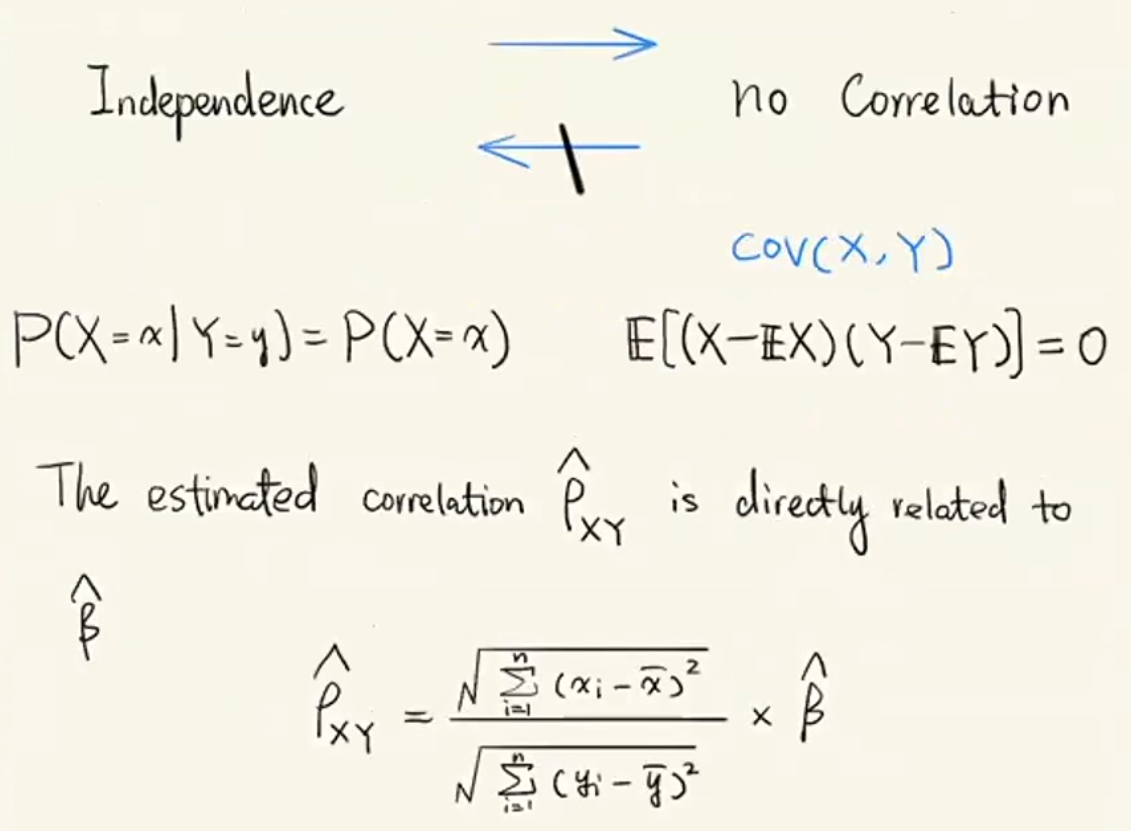 Independence no Correlation
COV(X, Y)
P(X=x|Y=y)=P(X=x) 𝔼[(X-𝔼X)(Y-𝔼Y)]=0
The estimated correlation ρ̂_XY is directly related to
β̂
ρ̂_XY = √(∑_{i=1}^{n} (x_i - x̄)²) / √(∑_{i=1}^{n} (y_i - ȳ)²) × β̂